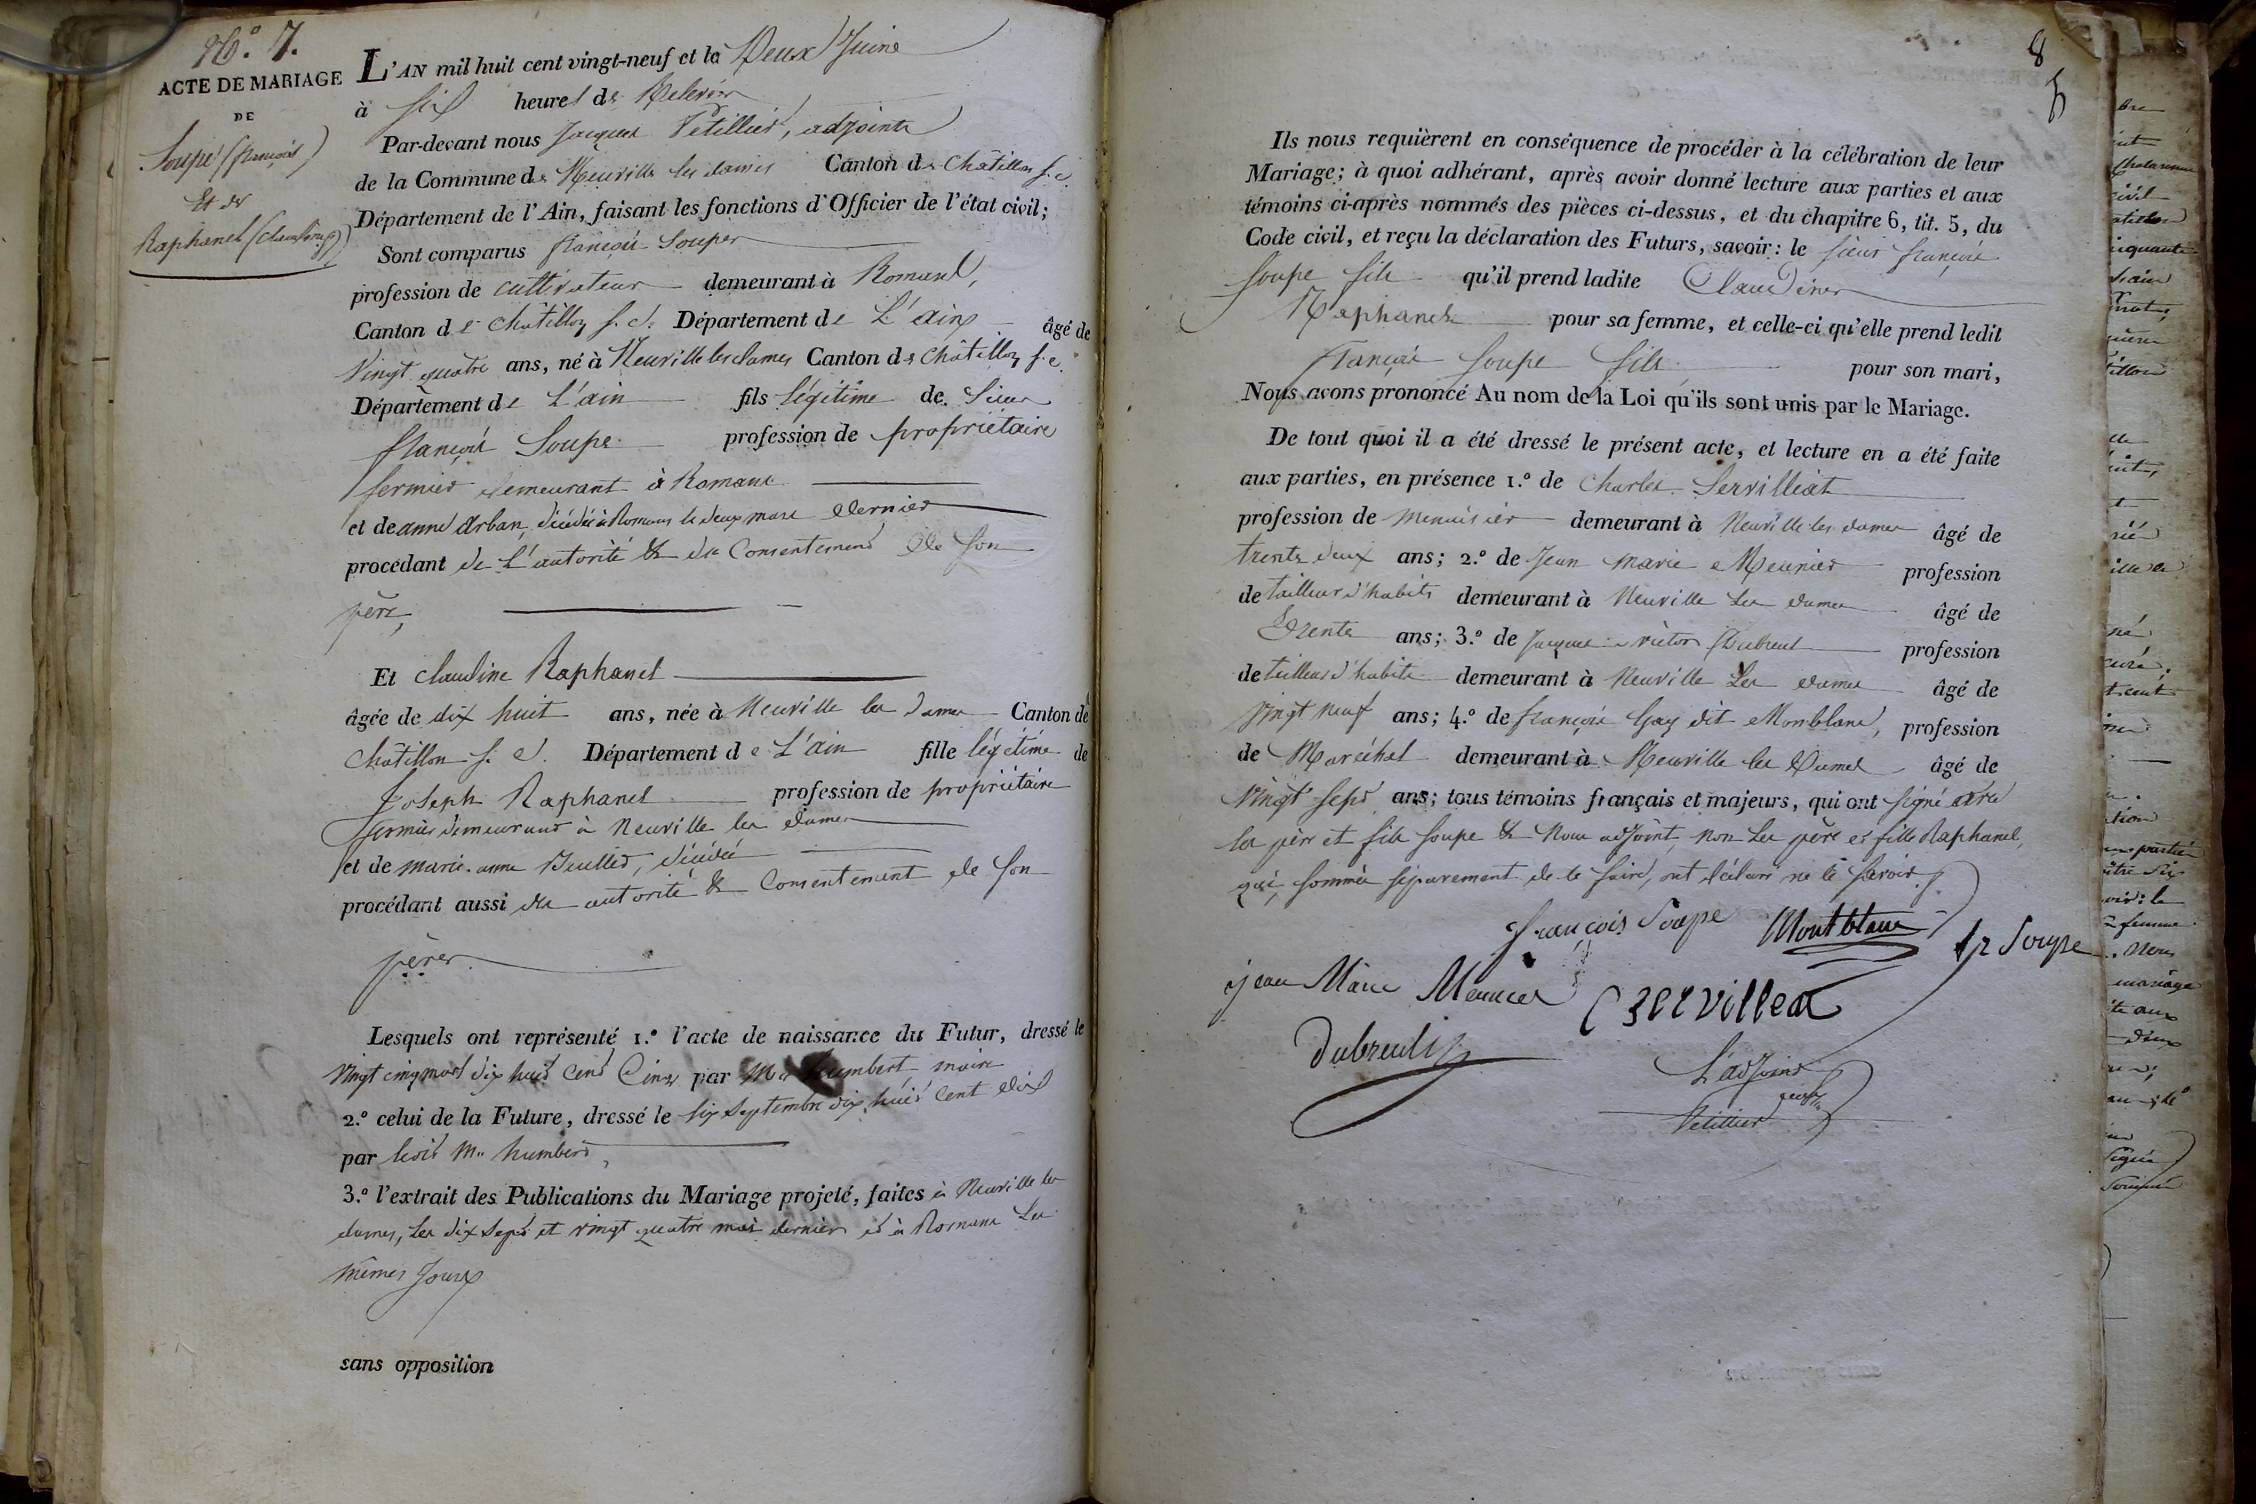 N.° 7.
ACTE DE MARIAGE
DE
Soupe (françois)
Et de
Raphanel (Claudine)
L'AN mil huit cent vingt-neuf et le Deux Juin
à six heures de Relevée
Par-devant nous Jacques Vétillier, adjoint
de la Commune de Neuville les dames Canton de Châtillon s. c.
Département de l'Ain, faisant les fonctions d'Officier de l'état civil;
Sont comparus françois Soupe
profession de cultivateur demeurant à Romans,
Canton de Châtillon s. c. Département de L'ain âgé de
Vingt quatre ans, né à Neuville les dames Canton de Châtillon s. c.
Département de L'ain fils légitime de Sieur
françois Soupe profession de propriétaire
fermier demeurant à Romans
et de anne Arban, décédée à Romans le deux mars dernier
procédant de L'autorité & du Consentement de son
père,
Et Claudine Raphanel
âgée de dix huit ans, née à Neuville les dames Canton de
Châtillon s. c. Département de L'ain fille légitime de
Joseph Raphanel profession de propriétaire
fermier demeurant à Neuville les dames
et de marie-anne, décédée
procédant aussi de autorité & Consentement de son
père.
Lesquels ont représenté 1.° l'acte de naissance du Futur, dressé le
Vingt cinq mars dix huit Cent Cinq par Mr humbert maire
2.° celui de la Future, dressé le six Septembre dix huit Cent dix
par ledit Mr. humbert,
3.° l'extrait des Publications du Mariage projeté, faites à Neuville les
dames, les dix Sept et vingt quatre mai dernier et à Romans les
mêmes Jours
sans opposition
8
Ils nous requièrent en conséquence de procéder à la célébration de leur
Mariage; à quoi adhérant, après avoir donné lecture aux parties et aux
témoins ci-après nommés des pièces ci-dessus, et du chapitre 6, tit. 5, du
Code civil, et reçu la déclaration des Futurs, savoir: le sieur françois
Soupe fils qu'il prend ladite Claudine
Raphanel pour sa femme, et celle-ci qu'elle prend ledit
françois Soupe fils pour son mari,
Nous avons prononcé Au nom de la Loi qu'ils sont unis par le Mariage.
De tout quoi il a été dressé le présent acte, et lecture en a été faite
aux parties, en présence 1.° de Charles Servilliat
profession de menuisier demeurant à Neuville les dames âgé de
trente deux ans; 2.° de Jean marie Meunier profession
de tailleur d'habits demeurant à Neuville Les dames âgé de
Trente ans; 3.° de Jacques victor Dubreul profession
de tailleur d'habits demeurant à Neuville Les dames âgé de
vingt neuf ans; 4.° de françois Gay dit Monblanc, profession
de Maréchal demeurant à Neuville les Dames âgé de
Vingt sept ans; tous témoins français et majeurs, qui ont signé avec
les père et fils Soupe & Nous adjoint, non Les père et fille Raphanel,
qui, sommés séparement de le faire, ont déclaré ne le savoir.
françois Soupe Montblanc fr Soupe
jean Marie Meunier C Servillea
dubreul
L'adjoint
Vetillier